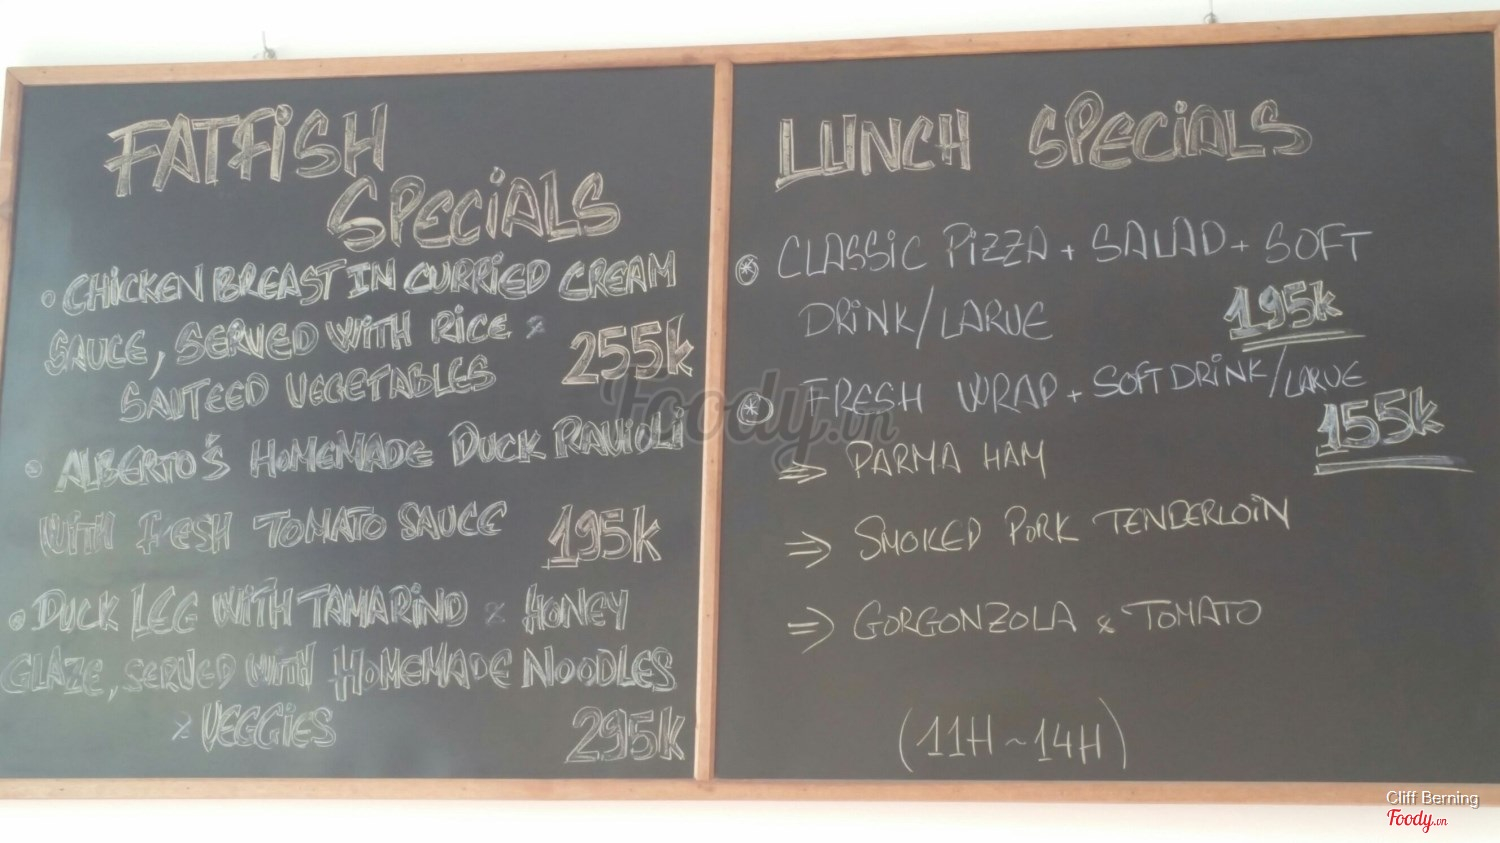 FATFiSH
SPECiALS
• CHiCKEN BREAST IN CURRiED CREAM
SAUCE, SERVED WiTH RiCE &
SAUTEED VEGETABLES 255k
• ALBERTO'S HOMEMADE DUCK RAViOLi
WiTH FRESH TOMATO SAUCE 195k
• DUCK LEG WiTH TAMARiND & HONEY
GLAZE, SERVED WITH HOMEMADE NOODLES
& VEGGiES 295k
LUNCH SPECiALS
CLASSiC PiZZA + SALAD + SOFT
DRiNK/LARUE 195k
FRESH WRAP + SOFT DRiNK/LARUE
155k
⇒ PARMA HAM
⇒ SMOKED PORK TENDERLOiN
⇒ GORGONZOLA & TOMATO
(11H ~ 14H)
Foody.vn
Cliff Berning
Foody.vn